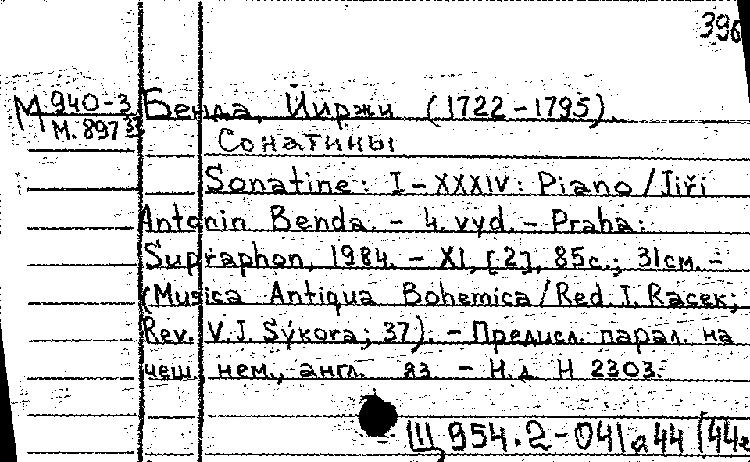 396
М 940-3 Бенда, Йиржи (1722-1795).
М. 897
Сонатины
Sonatine: I-XXXIV: Piano/Jiří
Antonin Benda. - 4. vyd. - Praha:
Supraphon, 1984. - XI, [2], 85с.; 31см. -
(Musica Antiqua Bohemica/Red. J. Racek;
Rev. V.J. Sýkora; 37). - Предисл. парал. на
чеш., нем., англ. яз. - Н.д. Н 2303.
Щ 954.2-041 а 44 (44